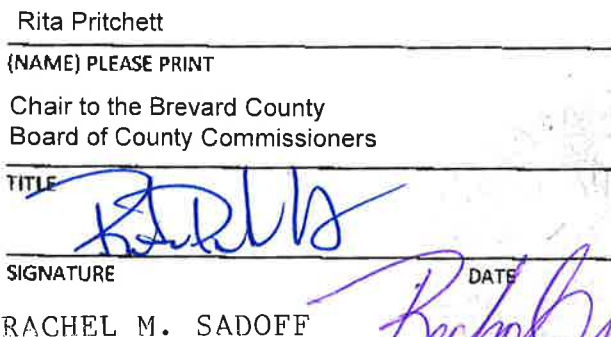 Rita Pritchett
(NAME) PLEASE PRINT
Chair to the Brevard County
Board of County Commissioners
TITLE
SIGNATURE DATE
RACHEL M. SADOFF